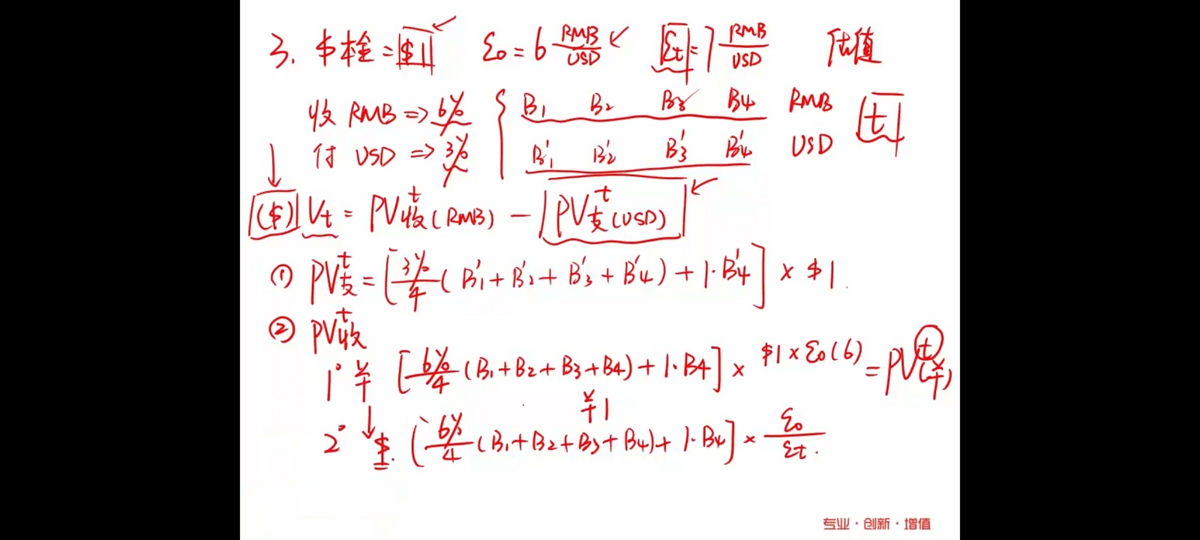 3. 本金 = $1 ε₀ = 6 RMB/USD εt = 7 RMB/USD 估值
收 RMB => 6% { B₁ B₂ B₃ B₄ RMB t
付 USD => 3% B₁' B₂' B₃' B₄' USD
($) Vt = PV收ᵗ(RMB) − PV支ᵗ(USD)
① PV支ᵗ = [3%/4 (B₁' + B₂' + B₃' + B₄') + 1·B₄'] × $1.
② PV收ᵗ
1° ¥ [6%/4 (B₁ + B₂ + B₃ + B₄) + 1·B₄] × $1 × ε₀(6) = PVᵗ(¥)
¥1
2° ↓ $. [6%/4 (B₁ + B₂ + B₃ + B₄) + 1·B₄] × ε₀/εt.
专业·创新·增值